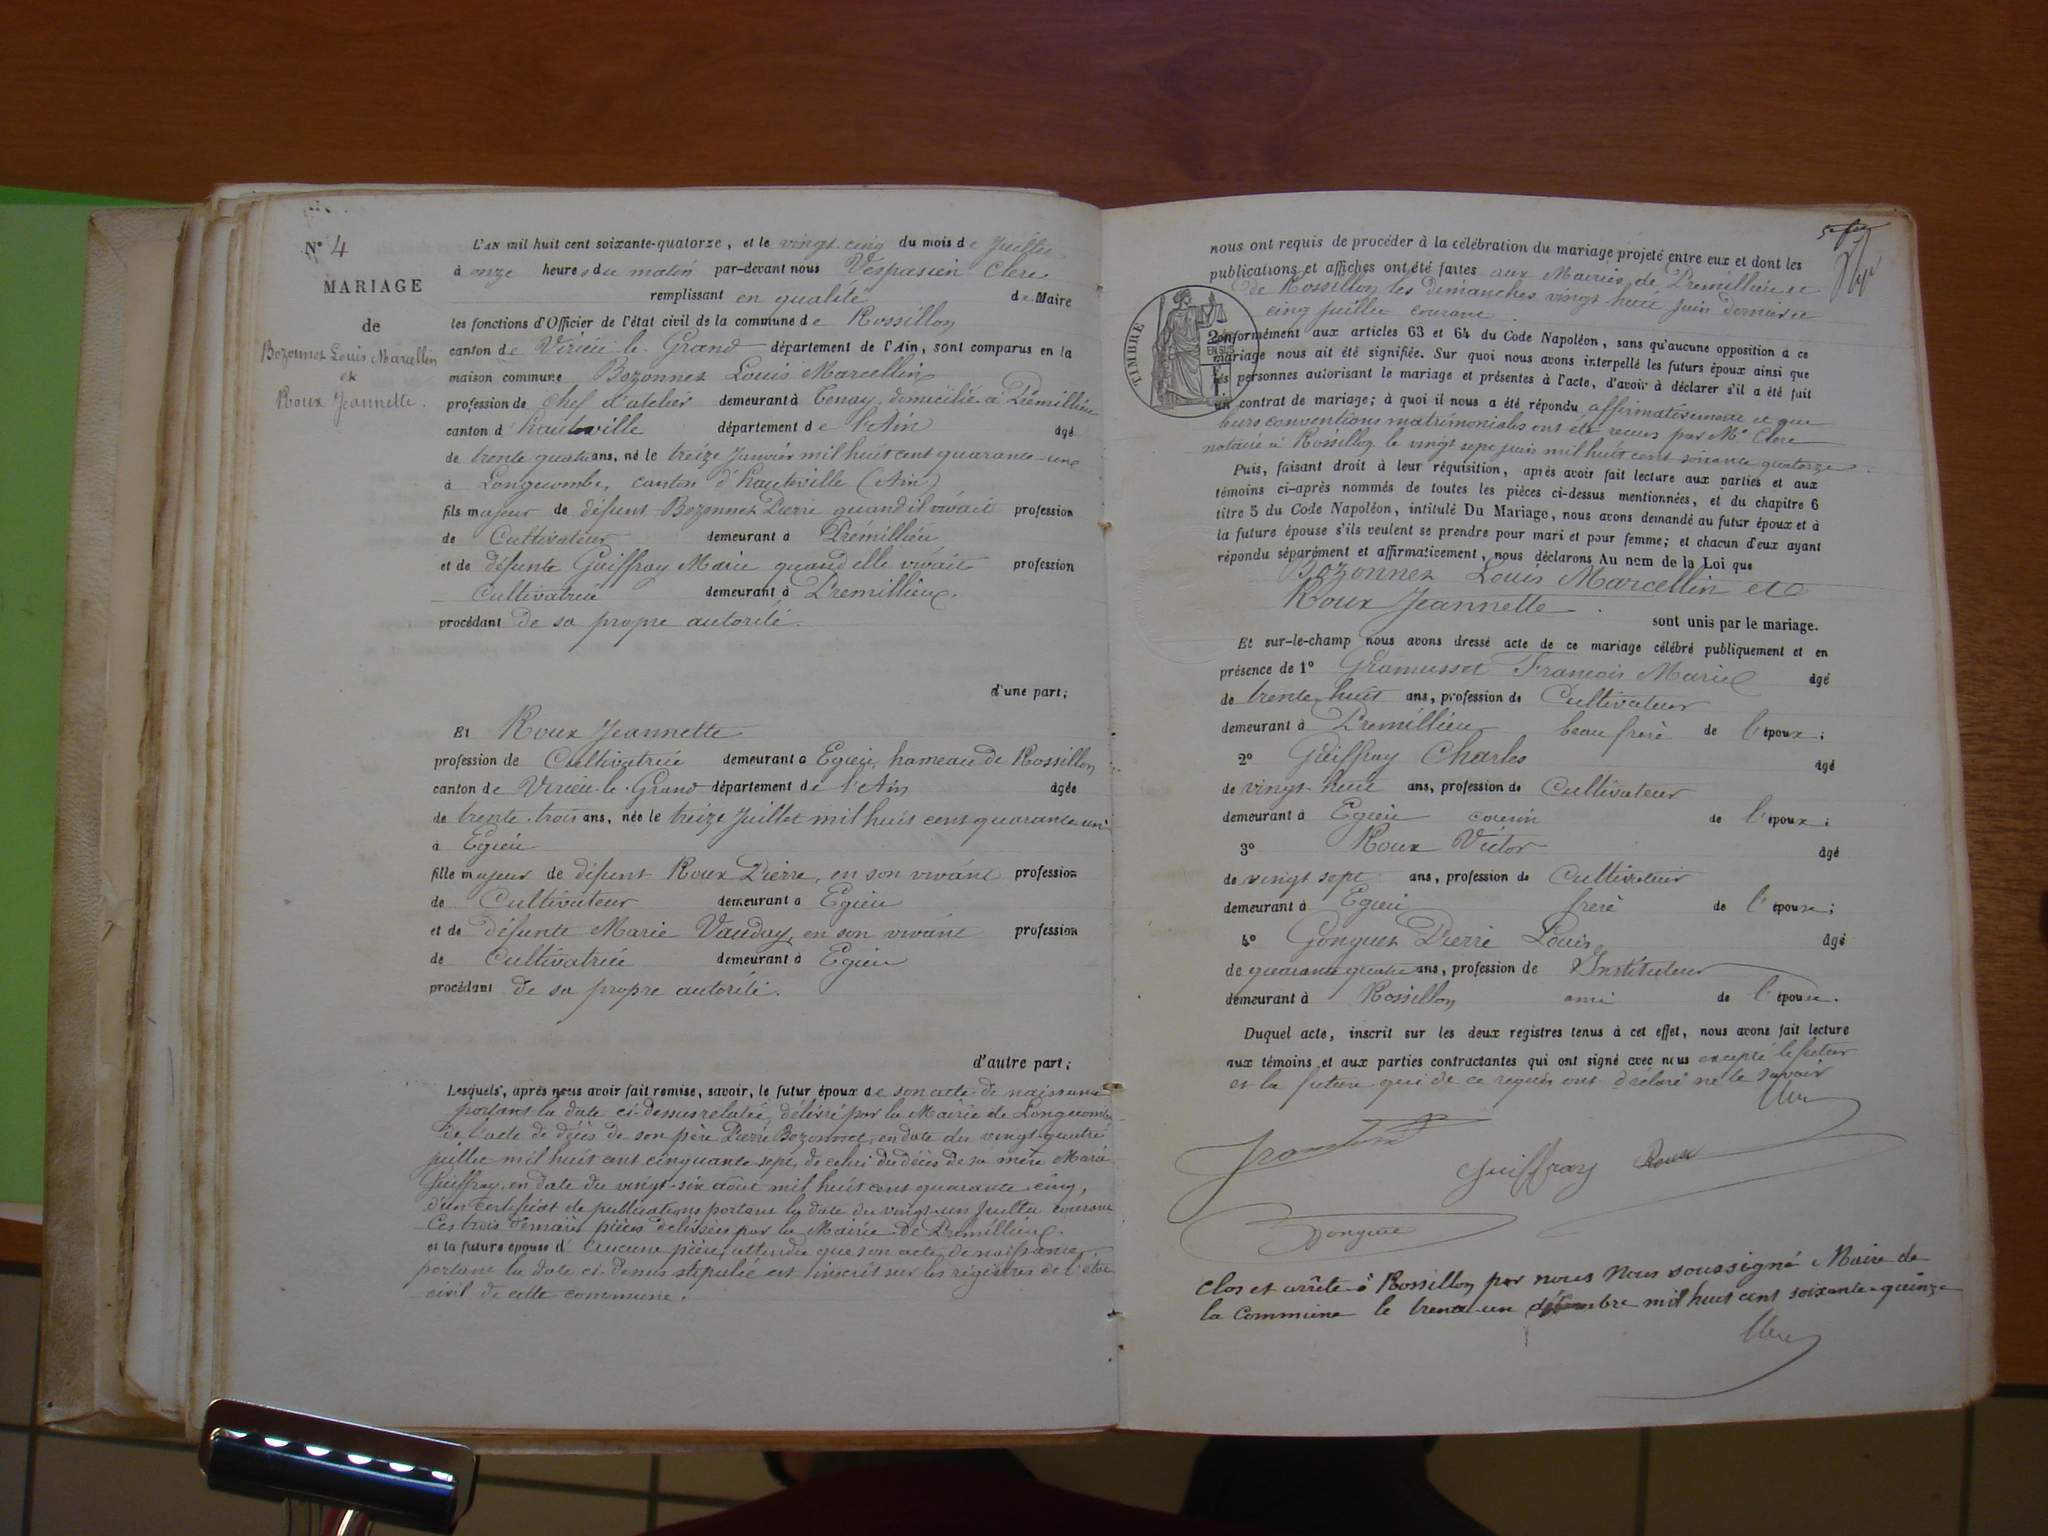 N° 4
MARIAGE
de
Bozonnet Louis Marcellin
et
Roux Jeannette.
L'AN mil huit cent soixante-quatorze, et le vingt cinq du mois de Juillet
à onze heures du matin par-devant nous Vespasien Clerc
remplissant en qualité de Maire
les fonctions d'Officier de l'état civil de la commune de Rossillon
canton de Virieu le Grand département de l'Ain, sont comparus en la
maison commune Bozonnet Louis Marcellin
profession de chef d'atelier demeurant à Tenay, domicilié à Prémillieu
canton d'hauteville département de l'Ain âgé
de trente quatre ans, né le treize Janvier mil huit cent quarante un
à Longecombe, canton d'hauteville (Ain)
fils majeur de défunt Bozonnet Pierre quand il vivait profession
de Cultivateur demeurant à Prémillieu
et de défunte Guiffray Marie quand elle vivait profession
Cultivatrice demeurant à Prémillieu.
procédant de sa propre autorité.
d'une part;
Et Roux Jeannette
profession de Cultivatrice demeurant à Egieu, hameau de Rossillon
canton de Virieu-le-Grand département de l'Ain âgée
de trente-trois ans, née le treize Juillet mil huit cent quarante un
à Egieu
fille majeur de défunt Roux Pierre, en son vivant profession
de Cultivateur demeurant à Egieu
et de défunte Marie Vauday, en son vivant profession
de Cultivatrice demeurant à Egieu
procédant de sa propre autorité.
d'autre part;
Lesquels, après nous avoir fait remise, savoir, le futur époux de son acte de naissance
portant la date ci-dessus relatée, délivré par la Mairie de Longecombe
de l'acte de décès de son père Pierre Bozonnet, en date du vingt-quatre
juillet mil huit cent cinquante sept, de celui du décès de sa mère Marie
Guiffray, en date du vingt-six août mil huit cent quarante-cinq,
d'un certificat de publications portant la date du vingt-un Juillet courant
Ces trois dernières pièces délivrées par la Mairie de Prémillieu.
et la future épouse d'aucune pièce, attendu que son acte de naissance
portant la date ci-dessus stipulée est inscrit sur les régistres de l'état
civil de cette commune.
nous ont requis de procéder à la célébration du mariage projeté entre eux et dont les
publications et affiches ont été faites aux Mairies de Prémillieu et
de Rossillon les dimanches vingt huit Juin dernier et
cinq juillet courant.
TIMBRE
conformément aux articles 63 et 64 du Code Napoléon, sans qu'aucune opposition à ce
mariage nous ait été signifiée. Sur quoi nous avons interpellé les futurs époux ainsi que
les personnes autorisant le mariage et présentes à l'acte, d'avoir à déclarer s'il a été fait
un contrat de mariage; à quoi il nous a été répondu affirmativement et que
leurs conventions matrimoniales ont été reçues par Me Clerc
notaire à Rossillon le vingt sept juin mil huit cent soixante quatorze.
Puis, faisant droit à leur réquisition, après avoir fait lecture aux parties et aux
témoins ci-après nommés de toutes les pièces ci-dessus mentionnées, et du chapitre 6
titre 5 du Code Napoléon, intitulé Du Mariage, nous avons demandé au futur époux et à
la future épouse s'ils veulent se prendre pour mari et pour femme; et chacun d'eux ayant
répondu séparément et affirmativement, nous déclarons Au nom de la Loi que
Bozonnet Louis Marcellin et
Roux Jeannette.
sont unis par le mariage.
Et sur-le-champ nous avons dressé acte de ce mariage célébré publiquement et en
présence de 1° Gramusset François Marie âgé
de trente-huit ans, profession de Cultivateur
demeurant à Prémillieu beau frère de l'époux;
2° Guiffray Charles âgé
de vingt huit ans, profession de Cultivateur
demeurant à Egieu cousin de l'époux;
3° Roux Victor âgé
de vingt sept ans, profession de Cultivateur
demeurant à Egieu frère de l'épouse;
4° Gonguet Pierre Louis âgé
de quarante quatre ans, profession de Instituteur
demeurant à Rossillon ami de l'épouse.
Duquel acte, inscrit sur les deux registres tenus à cet effet, nous avons fait lecture
aux témoins et aux parties contractantes qui ont signé avec nous excepté le futur
et la future qui de ce requis ont déclaré ne le savoir
Clerc
Guiffray Roux
Gonguet
Clos et arrêté à Rossillon par nous Nous soussigné Maire de
la Commune le trente-un décembre mil huit cent soixante-quinze
Clerc